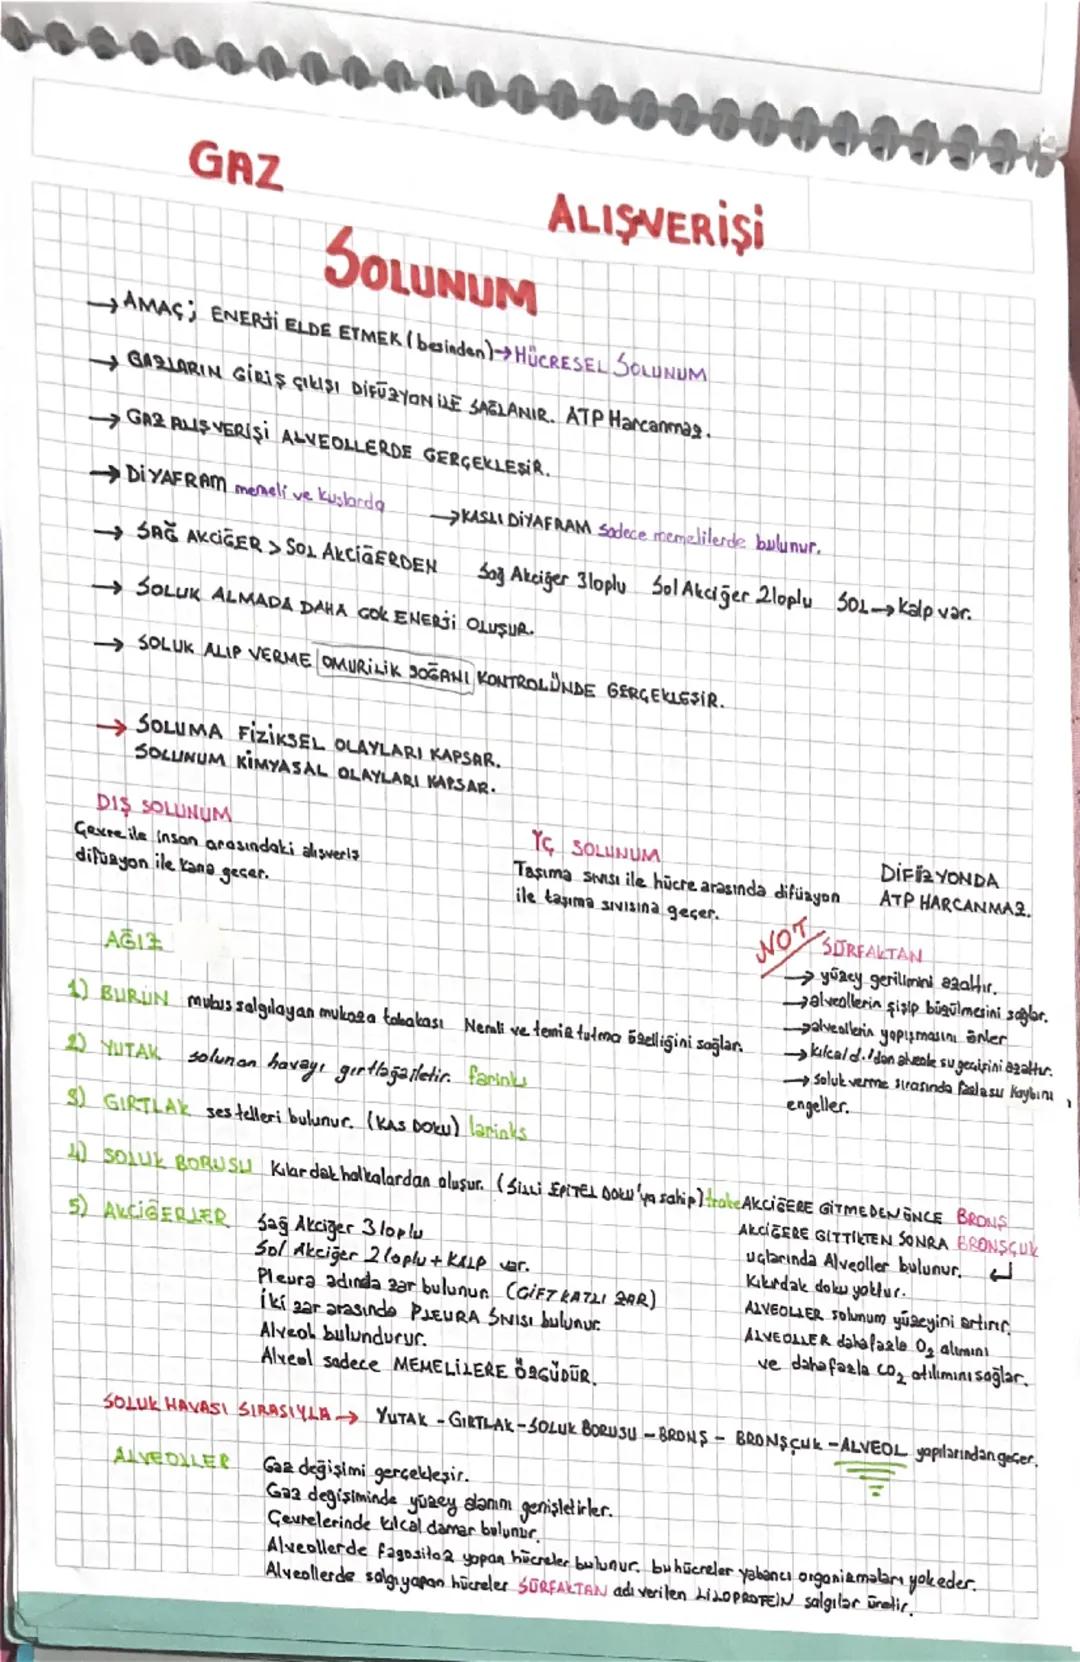 GAZ ALIŞVERİŞİ
SOLUNUM
→ AMAÇ; ENERJİ ELDE ETMEK (besinden) → HÜCRESEL SOLUNUM
→ GAZLARIN GİRİŞ ÇIKIŞI DİFÜZYON İLE SAĞLANIR. ATP Harcanmaz.
→ GAZ ALIŞVERİŞİ ALVEOLLERDE GERÇEKLEŞİR.
→ DİYAFRAM memeli ve kuşlarda → KASLI DİYAFRAM sadece memelilerde bulunur.
→ SAĞ AKCİĞER > SOL AKCİĞERDEN Sağ Akciğer 3loplu Sol Akciğer 2loplu SOL → Kalp var.
→ SOLUK ALMADA DAHA ÇOK ENERJİ OLUŞUR.
→ SOLUK ALIP VERME OMURİLİK SOĞANI KONTROLÜNDE GERÇEKLEŞİR.
→ SOLUMA FİZİKSEL OLAYLARI KAPSAR.
SOLUNUM KİMYASAL OLAYLARI KAPSAR.
DIŞ SOLUNUM
Çevre ile insan arasındaki alışveriş
difüzyon ile kana geçer.
İÇ SOLUNUM
Taşıma sıvısı ile hücre arasında difüzyon
ile taşıma sıvısına geçer.
DİFÜZYONDA
ATP HARCANMAZ.
NOT
SÜRFAKTAN
→ yüzey gerilimini azaltır.
→ alveollerin şişip büzülmesini sağlar.
→ alveollerin yapışmasını önler
→ kılcal d.'dan alveole su geçişini azaltır.
→ Soluk verme sırasında fazla su kaybını
engeller.
AĞIZ
1) BURUN mukus salgılayan mukoza tabakası Nemli ve temiz tutma özelliğini sağlar.
2) YUTAK solunan havayı gırtlağa iletir. farinks
3) GIRTLAK ses telleri bulunur. (KAS DOKU) larinks
4) SOLUK BORUSU Kıkırdak halkalardan oluşur. (SİLLİ EPİTEL DOKU'ya sahip) trake
5) AKCİĞERLER Sağ Akciğer 3loplu
Sol Akciğer 2loplu + KALP var.
Pleura adında zar bulunur. (ÇİFT KATLI ZAR)
İki zar arasında PLEURA SIVISI bulunur.
Alveol bulundurur.
Alveol sadece MEMELİLERE ÖZGÜDÜR.
AKCİĞERE GİTMEDEN ÖNCE BRONŞ
AKCİĞERE GİTTİKTEN SONRA BRONŞÇUK
uçlarında Alveoller bulunur.
Kıkırdak doku yoktur.
ALVEOLLER solunum yüzeyini artırır.
ALVEOLLER daha fazla O₂ alımını
ve daha fazla CO₂ atılımını sağlar.
SOLUK HAVASI SIRASIYLA → YUTAK - GIRTLAK - SOLUK BORUSU - BRONŞ - BRONŞÇUK - ALVEOL yapılarından geçer.
ALVEOLLER Gaz değişimi gerçekleşir.
Gaz değişiminde yüzey alanını genişletirler.
Çevrelerinde kılcal damar bulunur.
Alveollerde fagositoz yapan hücreler bulunur. bu hücreler yabancı organizmaları yok eder.
Alveollerde salgı yapan hücreler SÜRFAKTAN adı verilen LİLOPROTEİN salgılar üretir.